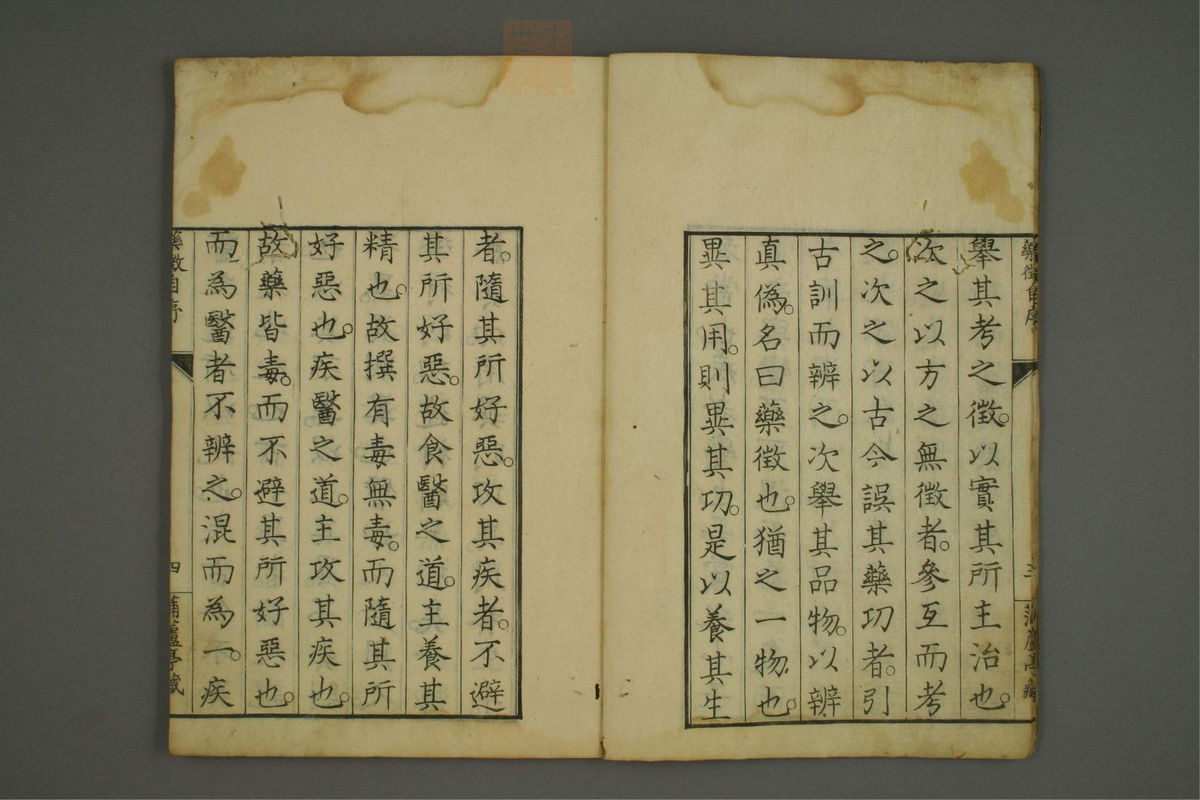 藥徵自序
舉其考之徵。以實其所主治也。
次之以方之無徵者。參互而考
之。次之以古今誤其藥功者。引
古訓而辨之。次舉其品物。以辨
真偽。名曰藥徵也。猶之一物也。
異其用。則異其功。是以養其生
者。隨其所好惡。攻其疾者。不避
其所好惡。故食醫之道。主養其
精也。故撰有毒無毒。而隨其所
好惡也。疾醫之道。主攻其疾也。
故藥皆毒。而不避其所好惡也。
而為醫者不辨之。混而為一。疾
藥徵自序 四 蒲蘆亭藏